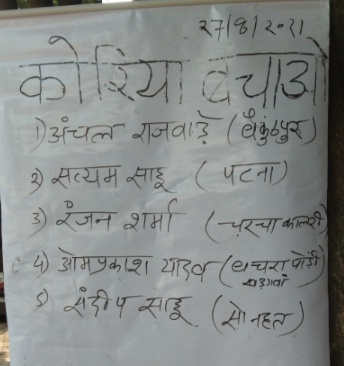 २७/8/२०२१
कोरिया बचाओ
1) अंचल राजवाड़े (बैकुंठपुर)
२) सत्यम साहू (पटना)
3) रंजन शर्मा (चरचा कालरी)
4) ओमप्रकाश यादव (बचरा पोंड़ी)
खड़गवां
5) संदीप साहू (सोनहत)